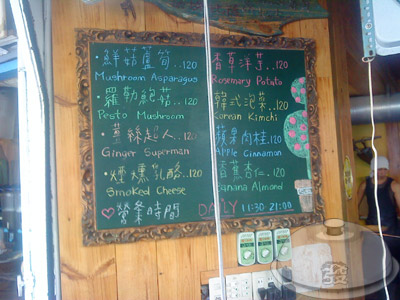 ·鮮菇蘆筍..120
Mushroom Asparagus
·羅勒鮑菇..120
Pesto Mushroom
·薑絲超人..120
Ginger Superman
·煙燻乳酪..120
Smoked Cheese
香草洋芋..120
Rosemary Potato
韓式泡菜..120
Korean Kimchi
蘋果肉桂..120
Apple Cinnamon
香蕉杏仁..120
Banana Almond
♡營業時間 DAILY 11:30-21:00